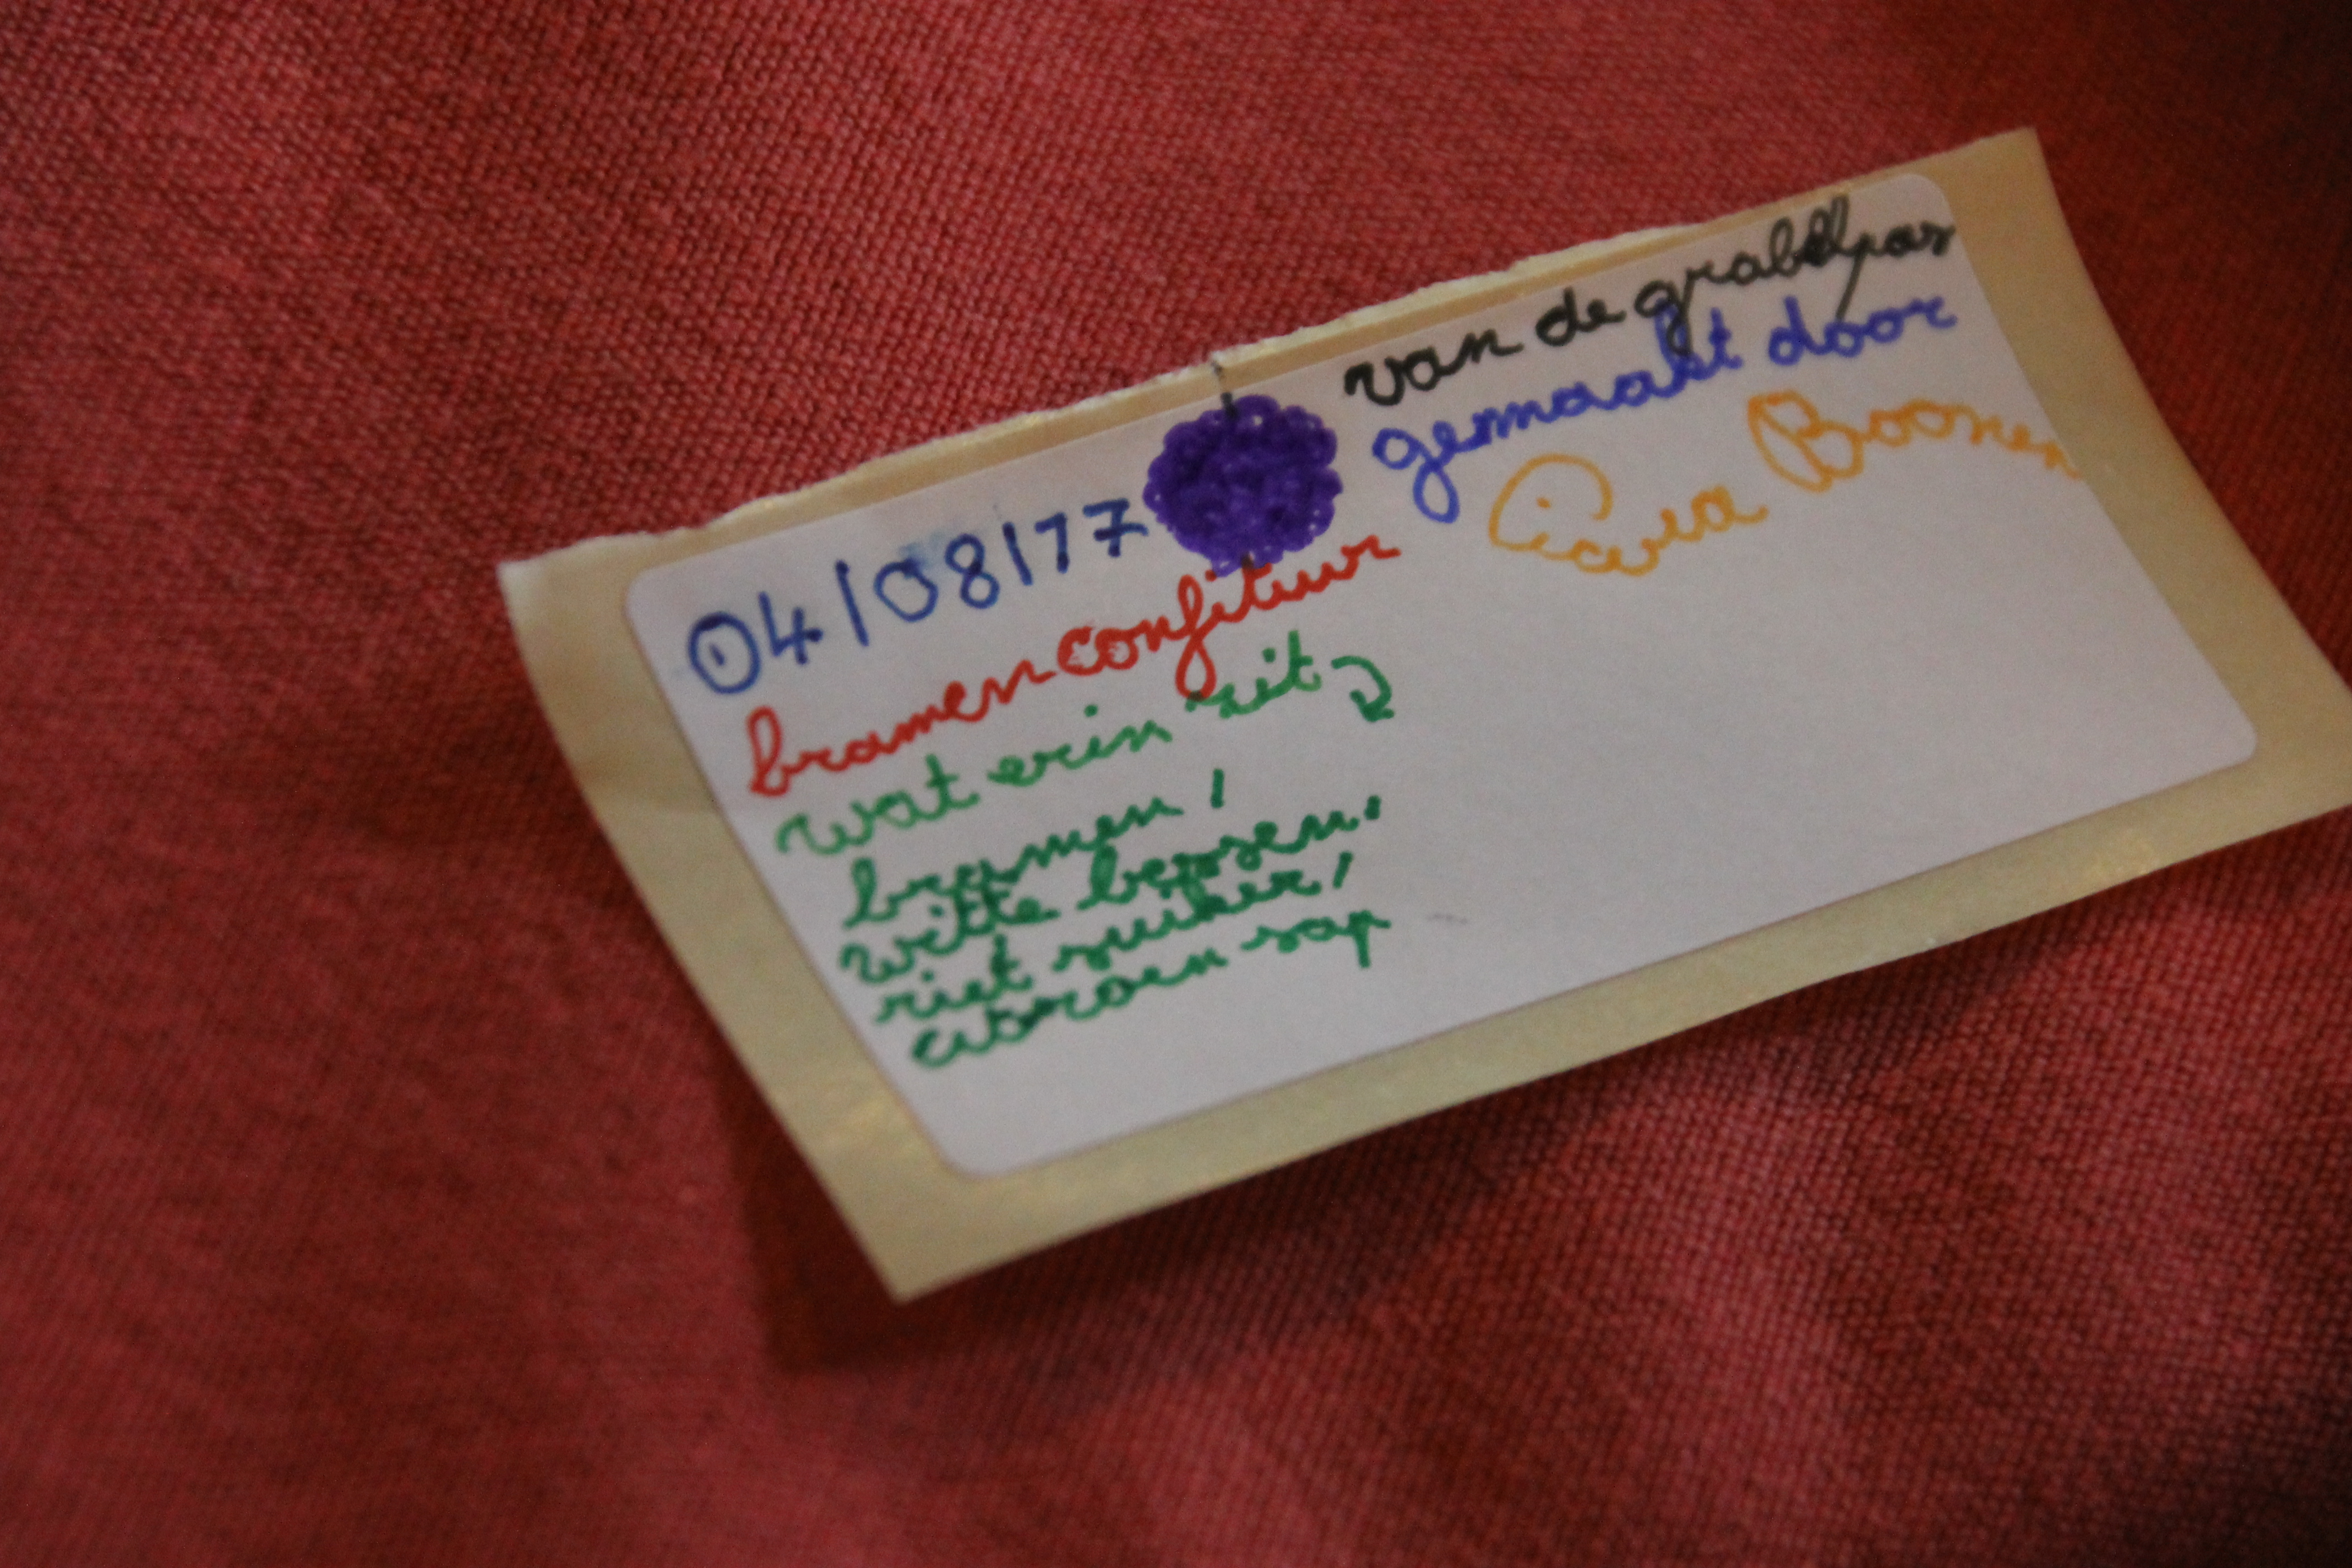 04/08/17
bramenconfituur
wat erin zit
bramen,
witte bessen,
riet suiker,
citroen sap
van de
gemaakt door
Boonen